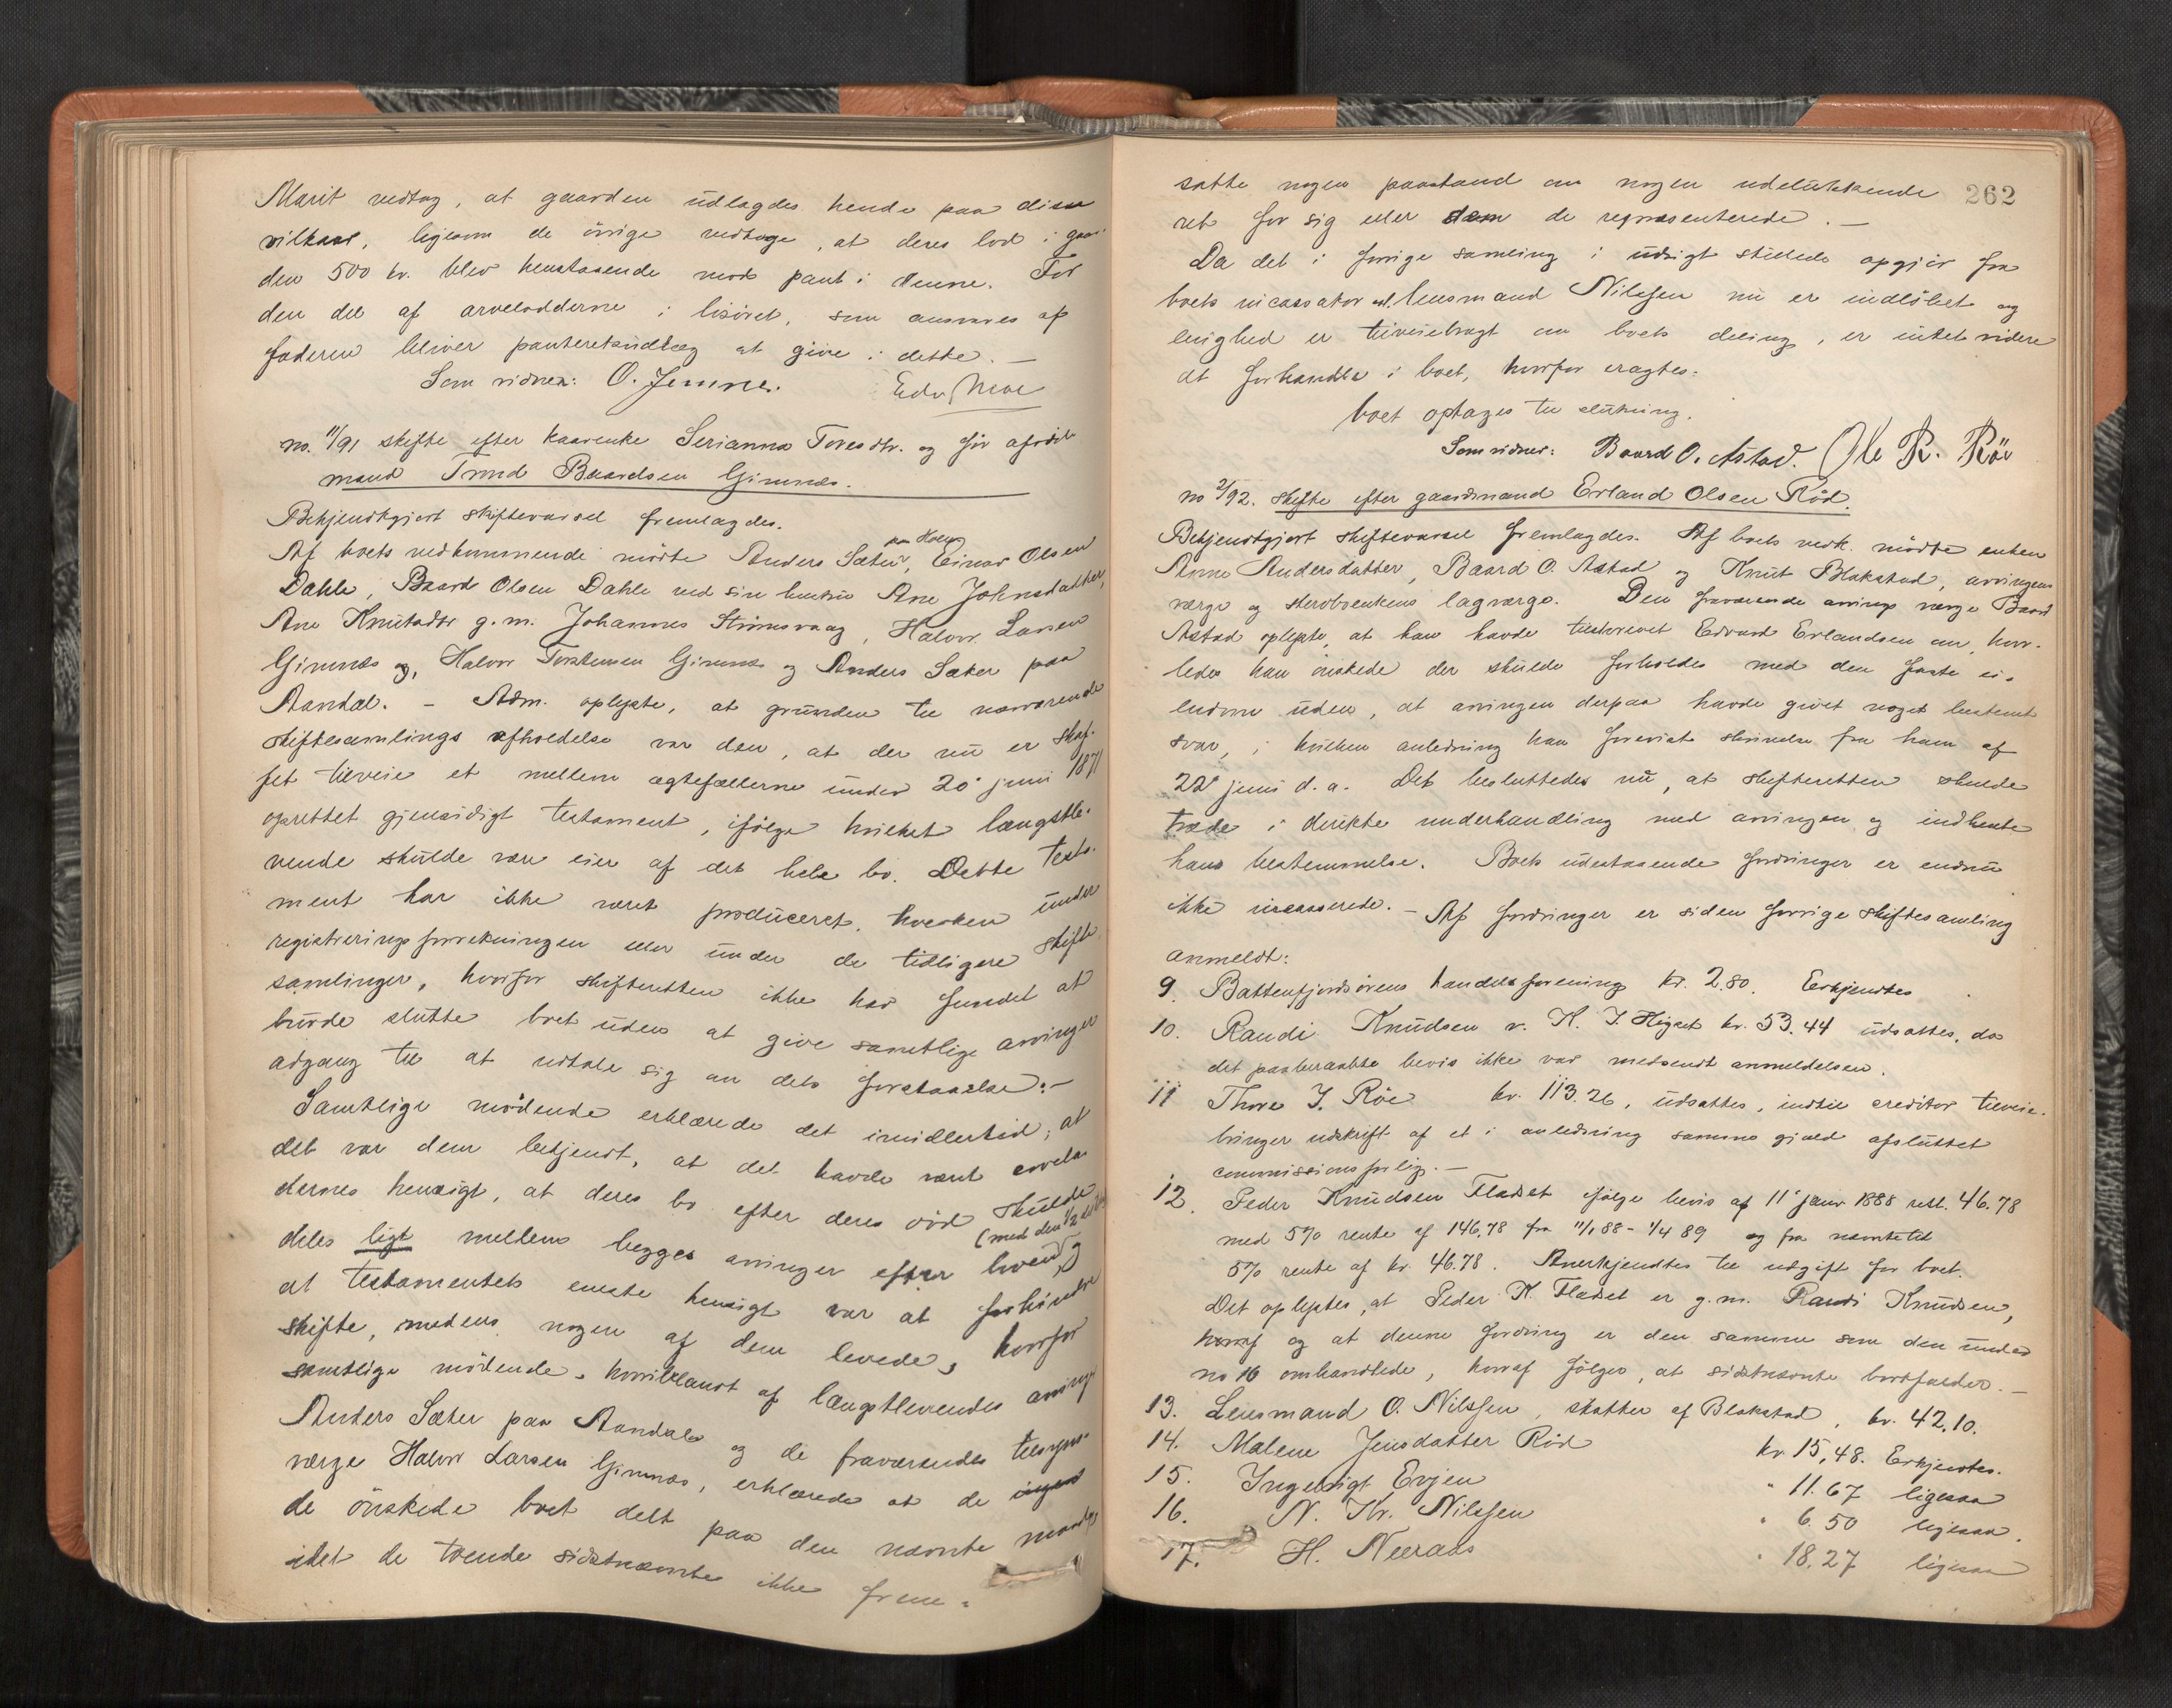 Marit vedtog, at gaarden udlagdes hende paa disse
vilkaar, ligesom de øvrige vedtoge, at deres lod i gaar-
den 500 kr. blev henstaaende mod pant i denne. For
den del af arvelodderne i løsøret, som ansvares af
faderen bliver panteretsudlæg at give i dette. —
Som vidner: O. Jemne. Edv Moe
no. 11/91 skifte efter kaarenke Serianna Toresdtr. og før afdøde
mand Trond Baardsen Gimnæs.
Bekjendtgjort skiftevarsel fremlagdes.
Af boets vedkommende mødte Anders Sæter, paa Einar Olsen
Dahle, Baard Olsen Dahle ved sin hustru Ane Johnsdatter,
Ane Knutsdtr g. m. Johannes Stromsvaag, Halvor Larsen
Gimnæs og, Halvor Torstensen Gimnæs og Anders Sæter paa
Aandal. – Adm. oplyste, at grunden til nærværende
skiftesamlings afholdelse var den, at der nu er skaf-
fet tilveie et mellem ægtefællerne under 20' juni 1871
oprettet gjensidigt testament, ifølge hvilket længstle-
vende skulde være eier af det hele bo. Dette testa-
ment har ikke været produceret, hverken under
registreringsforretningen eller under de tidligere skifte
samlinger, hvorfor skifteretten ikke har fundet at
burde slutte boet uden at give samtlige arvinger
adgang til at udtale sig om dets forstaaelse. –
Samtlige mødende erklærede det imidlertid, at
det var dem bekjendt, at det havde været arvela-
dernes hensigt, at deres bo efter deres død skulde
deles ligt mellem begges arvinger efter hver, (med den 1/2 og
at testamentets eneste hensigt var at forhindre
skifte, medens nogen af dem levede, hvorfor
samtlige mødende, hvoriblandt af længstlevendes arvinger
Anders Sæter paa Aandal og de fraværendes tilsyns-
værge Halvor Larsen Gimnæs, erklærede at de
de ønskede boet delt paa den nævnte maade,
idet de tvende sidstnævnte ikke frem-
262
satte nogen paastand om nogen udelukkende
ret for sig eller dem de repræsenterede. —
Da det i forrige samling i udsigt stillede opgjør fra
boets incassator lensmand Nilssen nu er indløbet og
enighed er tilveiebragt om boets deling, er intet videre
at forhandle i boet, hvorfor eragtes:
boet optages til slutning.
Som vidner: Baard O. Astad. Ole R. Röe
no 2/92. skifte efter gaardmand Erland Olsen Röd.
Bekjendtgjort skiftevarsel fremlagdes. Af boets vedk. mødte enken
Anne Andersdatter, Baard O. Astad og Knut Blakstad, arvingens
værge og sterboenkens lagværge. Den fraværende arvings værge Baard
Astad oplyste, at han havde tilskrevet Edvard Erlandsen om, hvor-
ledes han ønskede der skulde forholdes med den faste ei-
endom uden, at arvingen derpaa havde givet noget bestemt
svar, i hvilken anledning han foreviste skrivelse fra ham af
22' juni d. a. Det besluttedes nu, at skifteretten skulde
træde i direkte underhandling med arvingen og indhente
hans bestemmelse. Boets udestaaende fordringer er endnu
ikke incasserede. – Af fordringer er siden forrige skiftesamling
anmeldt:
9. Battenfjordsørens handelsforening kr. 2.80. Erkjendtes
10. Randi Knudsen v. K. J. Høgset kr. 53.44 udsattes, da
det paaberaabte bevis ikke var medsendt anmeldelsen.
11 Thore J. Röe kr. 113.26, udsattes, indtil creditor tilveie-
bringer udskrift af et i anledning samme gjæld afsluttet
commissionsforlig. —
12. Peder Knudsen Fladset ifølge bevis af 11' janr 1888 rest. 46.78
med 5% rente af 146.78 fra 11/1 88 - 1/4 89 og fra nævnte tid
5% rente af kr 46.78. Anerkjendtes til udgift for boet.
Det oplystes, at Peder K. Fladset er g. m. Randi Knudsen,
hvoraf og at denne fordring er den samme som den under
no 10 omhandlede, hvoraf følger, at sidstnævnte bortfalder. —
13. Lensmand O. Nilssen, skatter af Blakstad, kr. 42.10.
14. Malene Jensdatter Röd kr 15,48. Erkjendtes.
15. Ingebrigt Evjen " 11.67 ligesaa
16. N. Kr. Nilssen " 6.50 ligesaa.
17. H. Neeraas " 18.27 ligesaa